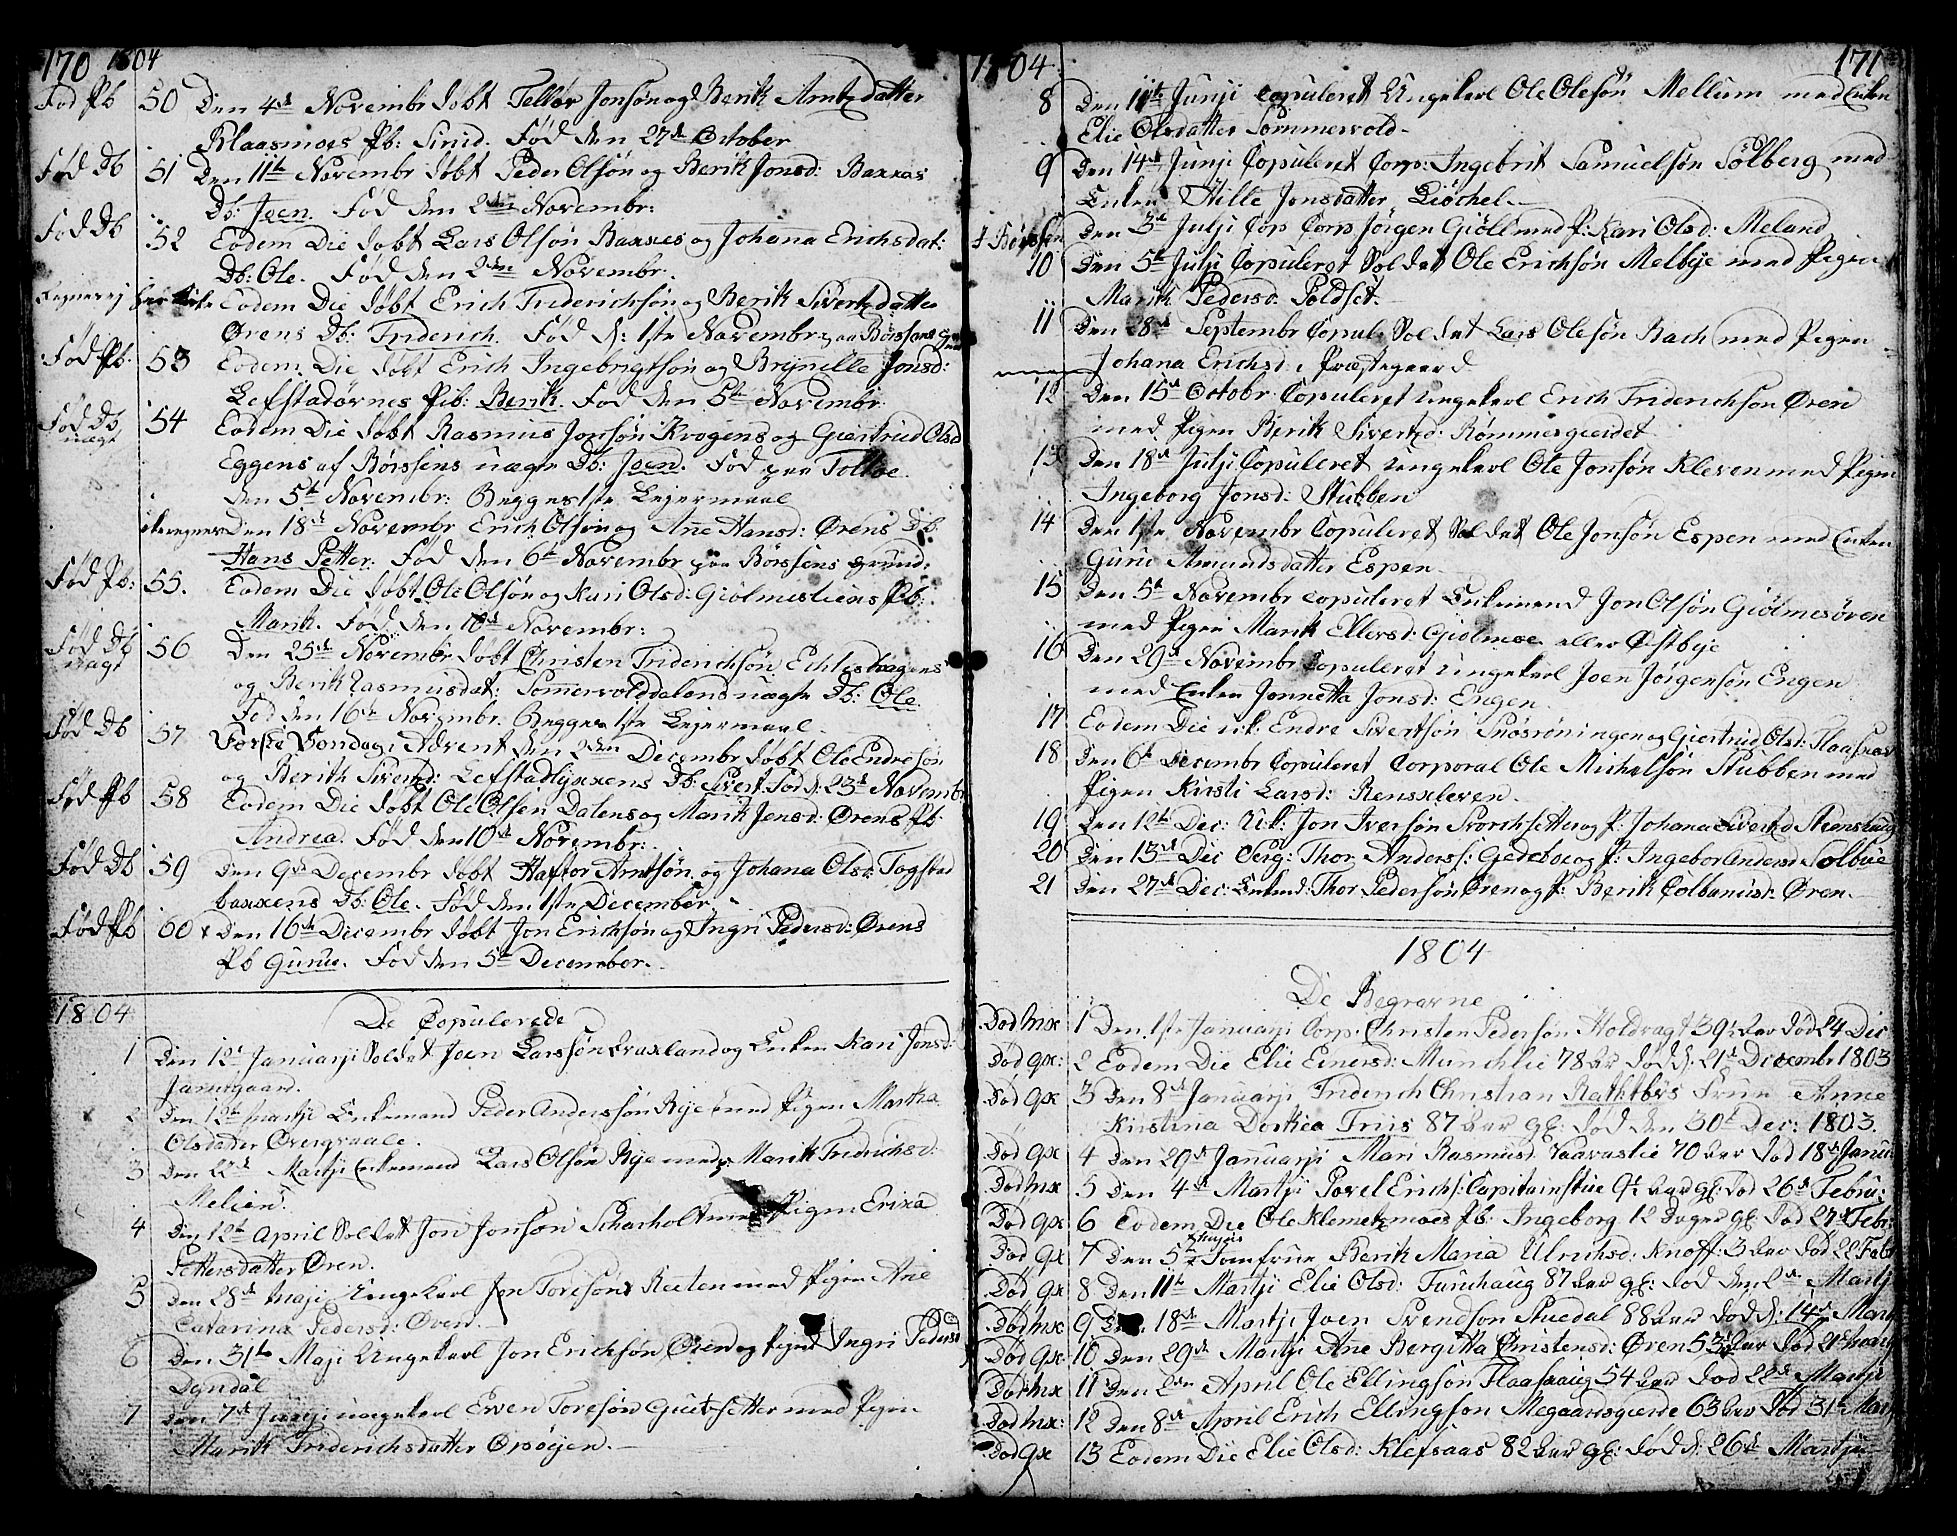 170 1804
Fød Pb 50 Den 4de Novembr døbt Tellev Jonsøn og Berit Arntzdatter
Klaasmoes Pb: Sirid. Fød den 27de October
Fød Db 51 Den 11te Novembr døbt Peder Olsøn og Berit Jonsd: Baxxas
Db: Joen. Fød den 2den Novembr:
Fød Db 52 Eodem Die døbt Lars Olsøn Baxxes og Johana Erichsdat:
Db: Ole. Fød den 2den Novembr.
Eodem Die døbt Erich Friderichsøn og Berit Sivertzdatter
Ørens Db: Friderich. Fød d: 1ste Novembr: paa Børssens
Fød Pb. 53 Eodem Die døbt Erich Ingebrigtsøn og Brynille Jonsd:
Lefstadørnes Pib: Berit. Fød den 5te Novembr
Fød Db 54 Eodem Die døbt Rasmus Jonsøn Krogens og Giertrud Olsd
uægt
Eggens af Børssens uægte Db: Joen. Fød paa Toltoe
den 5te Novembr: Begges 1ste Lejermaal
Den 18de Novembr Erich Olsøn og Ane Hansd: Ørens Db:
Hans Petter. Fød den 6te Novembr paa Børssens grund:
Fød Pb: 55. Eodem Die døbt Ole Olsøn og Kari Olsd: Giølmesliens Pb:
Marit. Fød den 10de Novembr:
Fød Db 56 Den 25de Novembr døbt Christen Friderichsøn
uægt
og Berit Rasmusdat: Sommervolddalens uægte Db: Ole
Fød den 16de Novembr. Begges 1ste Lejermaal.
Fød Db 57 Første Søndag i Advent den 2den Decembr døbt Ole Endresøn
og Berith Sivertzd: Lefstadlyxxens Db: Sivert Fød d: 23de Novembr
Fød Pb 58 Eodem Die døbt Ole Olsen Dalens og Marit Jensd: Ørens Pb
Andrea. Fød den 10de Novembr:
Fød Db 59 Den 9de Decembr døbt Haftor Arntsøn og Johana Olsd: Togstad
baxxens Db: Ole. Fød den 1ste December.
Fød Pb 60 Den 16de Decembr døbt Jon Erichsøn og Ingri Pedersd: Ørens
Pb Gurue. Fød den 5te December.
1804 De Copulerede
1 Den 12te Januarji Soldat Joen Larssøn Eraxland og Enken Kari Jonsd:
2 Den 12te Martji Enkemand Peder Anderssøn Rye med Pigen Maritha
Olsdatter
3 Den 22de Martji Enkemand Lars Olsøn Rye med Marit Fridrichsd:
Melien.
4 Den 12te April Soldat Jon Jonsøn Scharholt med Pigen Erixa
Pettersdatter Øren.
5 Den 28de Maji Ungekarl Jon Toresøn Reeten med Pigen Ane
Catarina Pedersd: Øren.
6 Den 31te Maji Ungekarl Jon Erichsøn Øren og Pigen Ingri Pedersd
Dyndal
7 Den 7de Junji ungekarl Even Toresøn med Pigen
Marit Friderichsdatter
1804 171
8 Den 11te Junji Copuleret Ungekarl Ole Olesøn Mellum med Enken
Elie Olsdatter Sommervold
9 Den 14de Junji Copuleret Corp: Ingebrit Samuelsøn Sølberg med
Enken Sille Jonsdatter
i Børssen Den 3de Julji Cop Corp Jørgen Giøll med P: Kari Olsd: Meland
10 Den 5te Julji Copuleret Soldat Ole Erichsøn Melbye med Pigen
Marit Pedersd: Soldset
11 Den 28de Septembr Copul: Soldat Lars Olesøn Bach med Pigen
Johana Erichsd: i Præstegaard
12 Den 15de Octobr Copuleret Ungekarl Erich Friderichsøn Øren
med Pigen Berit Sivertzd: Rømmesgierdet
13 Den 18de Julji Copuleret Ungekarl Ole Jonsøn Kleven med Pigen
Ingeborg Jonsd: Stubben
14 Den 1ste Novembr Copuleret Soldat Ole Jonsøn Espen med Enken
Guru Amundsdatter Espen
15 Den 5te Novembr Copuleret Enkemand Jon Olsøn Giølmesøren
med Pigen Marit Ellersd: Giølmoe eller Østbye
16 Den 29de Novembr Copuleret Ungekarl Joen Jørgensøn Engen
med Enken Jonnetta Jonsd: Engen
17 Eodem Die u.k. Endre Sivertsøn Snøsrøningen og Giertrud Olsd:
18 Den 6te Decembr Copuleret Corporal Ole Michelsøn Stubben med
Pigen Kirsti Larsd: Rensxleven.
19 Den 12te Dec: U.k: Jon Iversøn Storchsetter og P: Johana Sivertzd
20 Den 13de Dec Serg: Thor Anderss: Gedeboe og P: Ingebor Andersd Solbue
21 Den 27de Dec: Enkmd: Thor Pedersøn Øren og P: Berit Colbanisd: Øren.
1804
De Begravne
Død mx 1 Den 1ste Januarji Corp: Christen Pedersøn Holdragt 39½ aar død 24 Dec
Død qx: 2 Eodem Die Elie Einersd: Munchlie 78 aar død d: 21de Decembr 1803
Død qx 3 Den 8de Januarji Friderich Christian Rathkevs Frue Anne
Kirstina Dorthea Friis 87 aar gl: død den 30te Dec: 1803.
Død qx 4 Den 29de Januarji Mari Rasmusd: 70 aar død 18de Janu:
Død mx 5 Den 4de Martji Povel Erichs: Capitainstue 9½ aar gl: død 26de Febru:
Død qx: 6 Eodem Die Ole Klemetzmoes Pb: Ingeborg 12 dager gl død 27de Febr:
Død qx 7 Den 5te Jomfrue Berit Maria Ulrichsd: Knoff: 3 aar død 22 Febr
Død qx 8 Den 11te Martji Elie Olsd: Furuhaug 87 aar gl: død den 2den Martji
Død mx 9 Den 18de Martji Joen Svendsøn Stuedal 88 aar død d: 14de Martj
Død qx 10 Den 29de Martji Ane Bergitta Christensd: Øren 53½ aar død 21de Martj
Død mx 11 Den 2den April Ole Ellingsøn Flaahaug 54 aar død 22de Martji
Død mx: 12 Den 8de April Erich Ellingsøn Megaardsgierde 63 aar død 31te Mart
Død qx 13 Eodem Die Elie Olsd: Klefsaas 82 aar gl: død d: 26de Martji